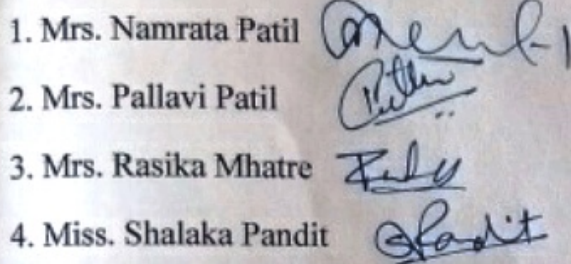 1. Mrs. Namrata Patil
2. Mrs. Pallavi Patil
3. Mrs. Rasika Mhatre
4. Miss. Shalaka Pandit SPandit